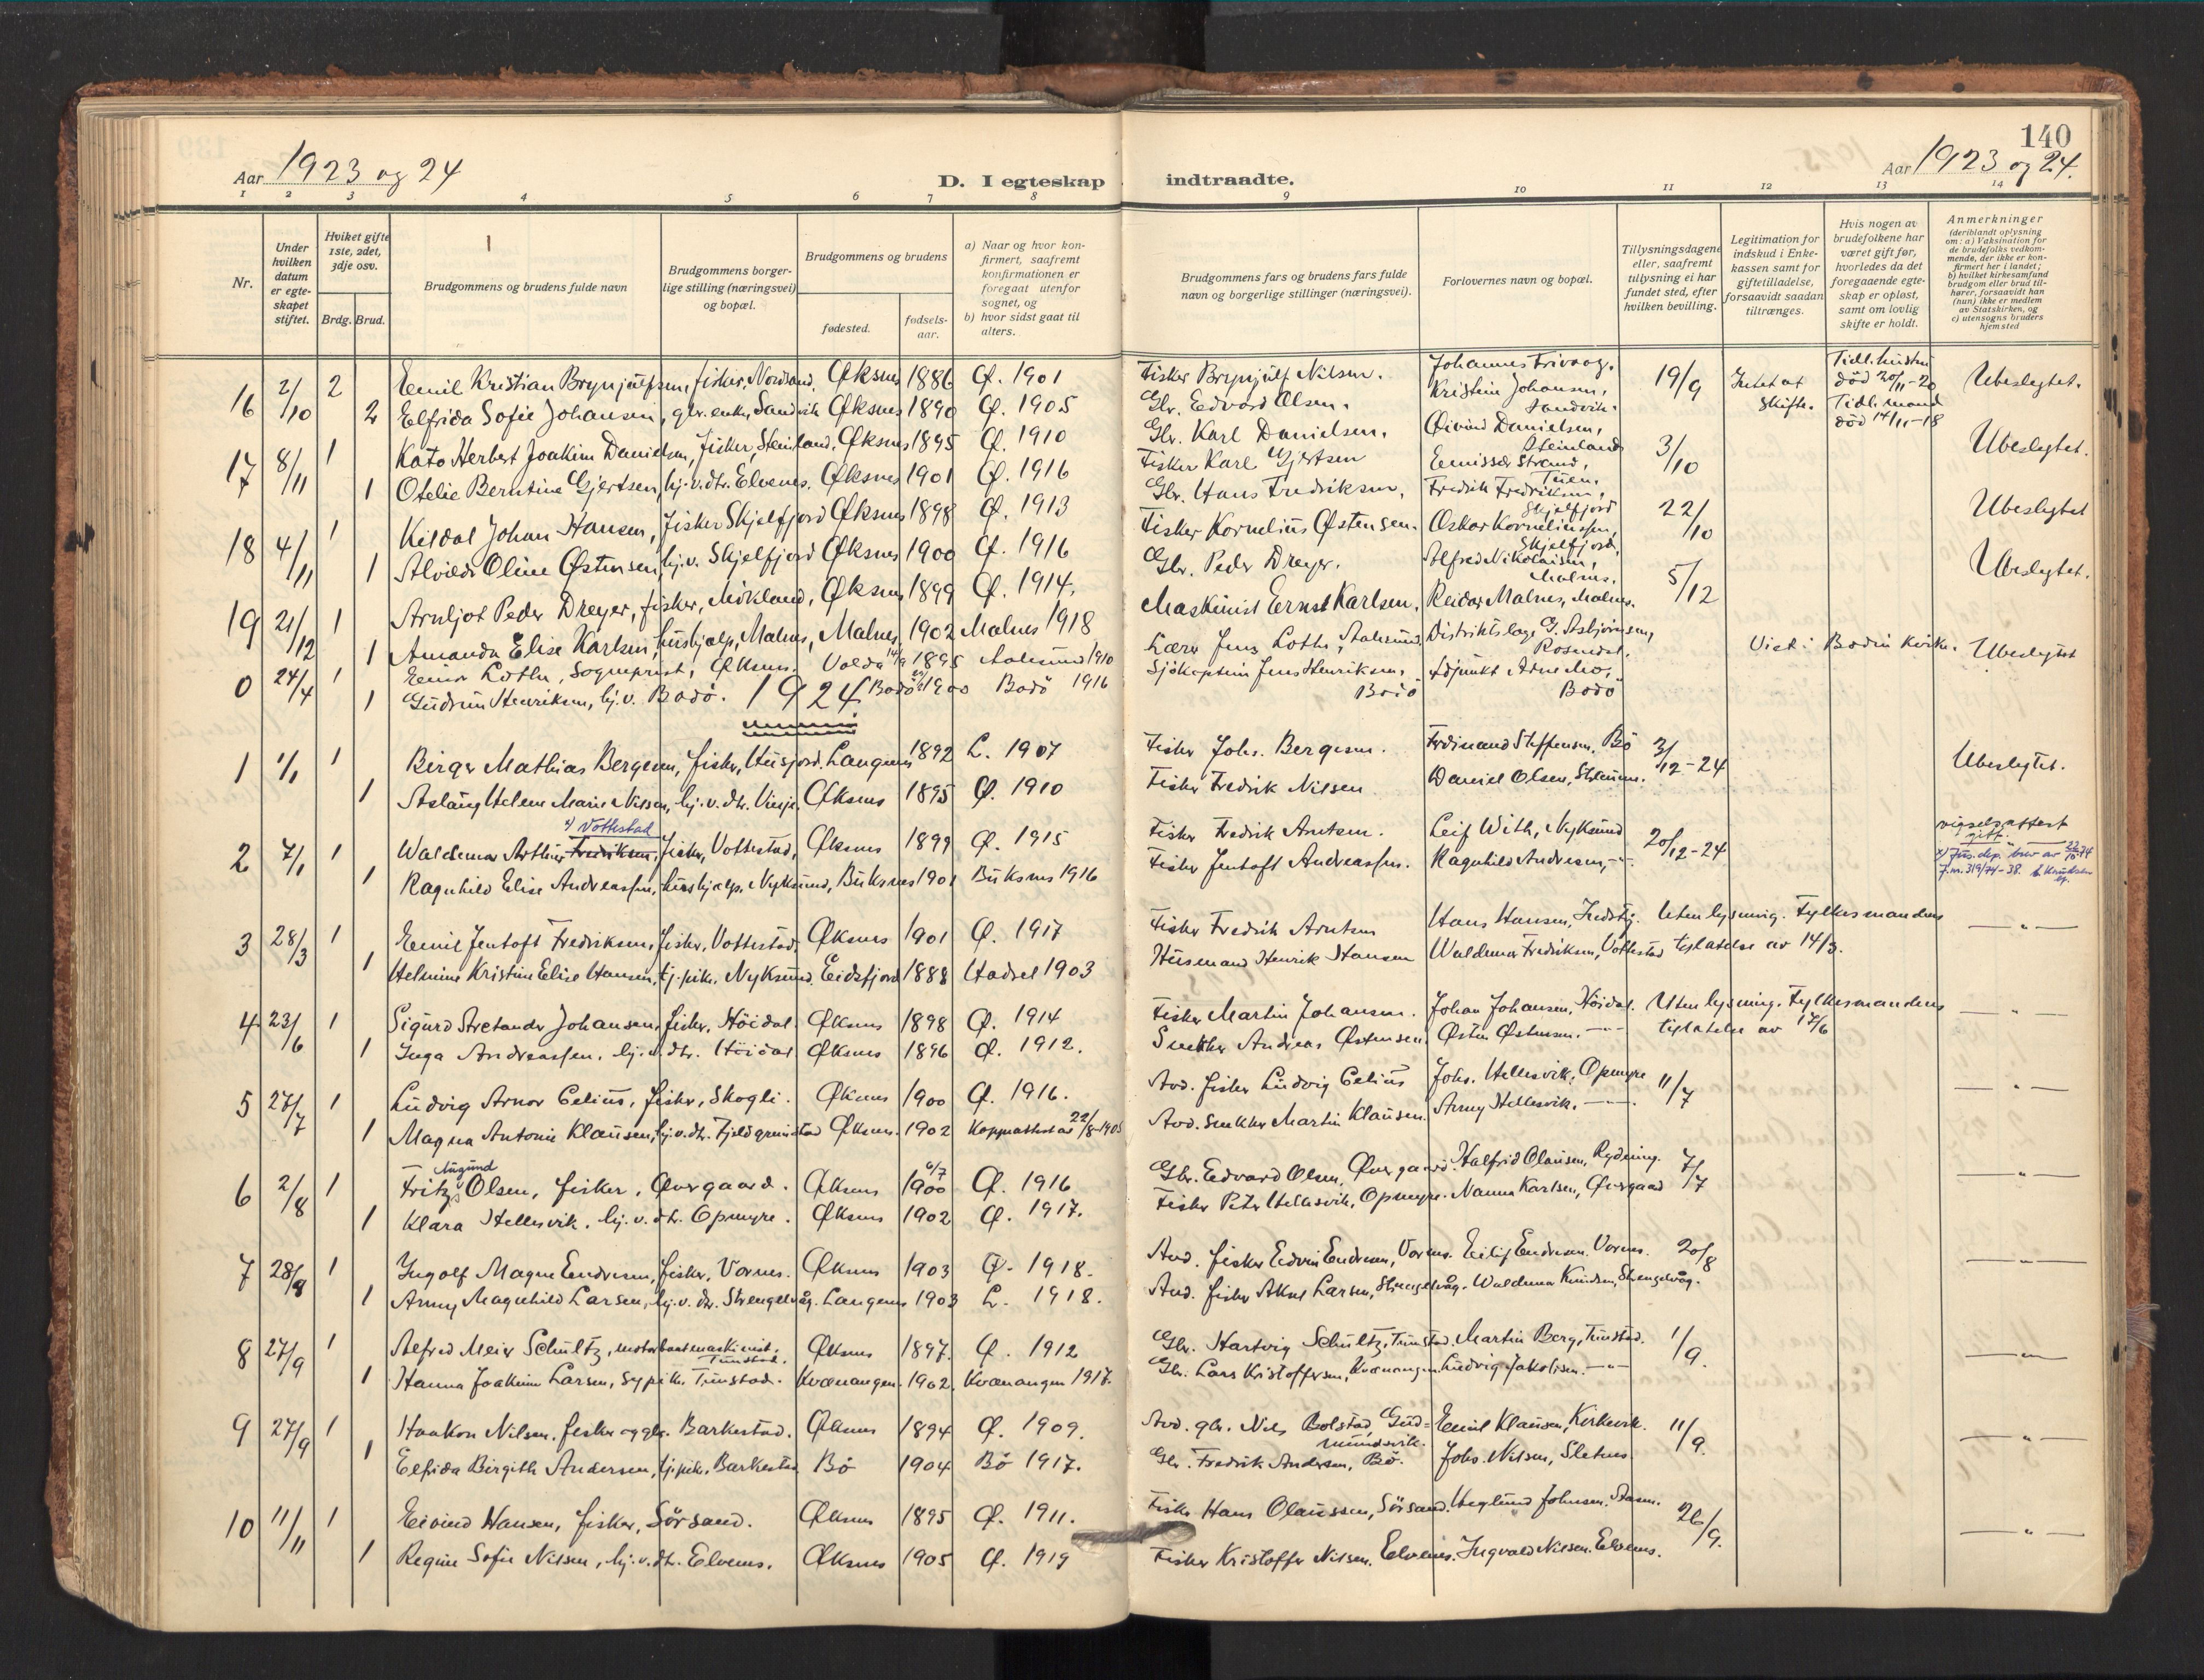 140
Aar 1923 og 24
D. I egteskap indtraadte.
Aar 1923 og 24.
1 2 3 4 5 6 7 8 9 10 11 12 13 14
Nr.
Under hvilken datum er egteskapet stiftet.
Hviket gifte 1ste, 2det, 3dje osv.
Brdg. Brud.
Brudgommens og brudens fulde navn
Brudgommens borgerlige stilling (næringsvei) og bopæl.
Brudgommens og brudens
fødested.
fødselsaar.
a) Naar og hvor konfirmert, saafremt konfirmationen er foregaat utenfor sognet, og
b) hvor sidst gaat til alters.
Brudgommens fars og brudens fars fulde navn og borgerlige stillinger (næringsvei).
Forlovernes navn og bopæl.
Tillysningsdagene eller, saafremt tillysning ei har fundet sted, efter hvilken bevilling.
Legitimation for indskud i Enkekassen samt for giftetilladelse, forsaavidt saadan tiltrænges.
Hvis nogen av brudefolkene har været gift før, hvorledes da det foregaaende egteskap er opløst, samt om lovlig skifte er holdt.
Anmerkninger (deriblandt oplysning om: a) Vaksination for de brudefolks vedkommende, der ikke er konfirmert her i landet; b) hvilket kirkesamfund brudgom eller brud tilhører, forsaavidt han (hun) ikke er medlem av Statskirken, og c) utensogns bruders hjemsted
16 2/10 2 Emil Kristian Brynjulfsen, fisker, Nordsand. Øksnes 1886 Ø. 1901 Fisker Brynjulf Nilsen. Johannes Frivaag. 19/9 Intet at skifte. Tidl. hustru død 20/11-20 Ubeslegtet.
2 Elfrida Sofie Johansen, gbr. enke, Sandvik Øksnes 1890 Ø. 1905 Gbr. Edvard Olsen. Kristein Johansen, Sandvik. Tidl. mand død 14/11-18
17 8/11 1 Kato Herbert Joakim Danielsen, fisker, Steinland. Øksnes 1895 Ø. 1910 Gbr. Karl Danielsen. Øivind Danielsen, Steinland 3/10 Ubeslegtet.
1 Otelie Berntine Gjertsen, hj. v. dtr. Elvenes. Øksnes 1901 Ø. 1916 Fisker Karl Gjertsen Emissær Strand, Tuen.
18 4/11 1 Keidal Johan Hansen, fisker Skjelfjord Øksnes 1898 Ø. 1913 Gbr. Hans Fredriksen, Fredrik Fredriksen, Skjelfjord 22/10 Ubeslegtet
1 Alvilde Oline Østensen, hj. v. Skjelfjord Øksnes 1900 Ø. 1916 Fisker Kornelius Østensen. Oskar Korneliussen, Skjelfjord.
19 21/12 1 Arnljot Peder Dreyer, fisker, Mikland, Øksnes 1899 Ø. 1914. Gbr. Peder Dreyer. Alfred Nikolaisen, Malnes. 5/12 Ubeslegtet.
1 Amanda Elise Karlsen, hushjelp, Malnes, Malnes 1902 Malnes 1918 Maskinist Ernst Karlsen. Reidar Malnes, Malnes.
0 24/4 1 Einar Lothe, Sogneprest, Øksnes. Volda 1895 Aalesund 1910 Lærer Jens Lothe, Aalesund Distriktslæge G. Asbjørnsen, Rosendal. Viet i Bodin kirke. Ubeslegtet
1 Gudrun Henriksen, hj. v. Bodö. Bodö 1900 Bodö 1916 Sjökaptein Jens Henriksen, Bodö Adjunkt Arne Mo, Bodö
1924
1 1/1 1 Birger Mathias Bergesen, fisker, Husjord. Langenes 1892 L. 1907 Fisker Johs. Bergesen. Ferdinand Steffensen, Bö 3/12-24 Ubeslegtet.
1 Aslaug Helene Marie Nilsen, hj. v. dtr. Vinje. Øksnes 1895 Ø. 1910 Fisker Fredrik Nilsen Daniel Olsen, Straume.
x) Vottestad
2 7/1 1 Waldemar Arthur Fredriksen, fisker, Vottestad, Øksnes 1899 Ø. 1915 Fisker Fredrik Arntsen. Leif With, Nyksund 20/12-24 vigselsattest gitt. x) Jus.dep. brev av 22/10-74 J.nr. 319/74-38.
1 Ragnhild Elise Andreassen, hushjelp, Nyksund, Buksnes 1901 Buksnes 1916 Fisker Jentoft Andreassen. Ragnhild Andresen, -"-
3 28/3 1 Emil Jentoft Fredriksen, fisker, Vottestad, Øksnes 1901 Ø. 1917 Fisker Fredrik Arntsen Hans Hansen, Uten lysning. Fylkesmandens -"-
1 Helmine Kristine Elise Hansen, tj. pike, Nyksund. Eidsfjord 1888 Hadsel 1903 Husmand Henrik Hansen Waldemar Fredriksen, Vottestad tillatelse av 14/3.
4 23/6 1 Sigurd Aretander Johansen, fisker, Höidal. Øksnes 1898 Ø. 1914 Fisker Martin Johansen. Johan Johansen, Höidal. Uten lysning. Fylkesmandens -"-
1 Inga Andreassen, hj. v. dtr. Höidal Øksnes 1896 Ø. 1912. Snekker Andreas Østensen. Østen Østensen. -"- tillatelse av 17/6
5 27/7 1 Ludvig Arnor Celius, fisker, Skogli. Øksnes 1900 Ø. 1916. Avd. fisker Ludvig Celius Johs. Hellesvik, Opmyre 11/7 -"-
1 Magna Antonie Klausen, hj. v. dtr. Fjeldgrunstad Øksnes. 1902 Koppeattest av 22/8-1905 Avd. snekker Martin Klausen. Arny Hellesvik. -"-
Augund 6/7
6 2/8 1 Fritz Olsen, fisker, Øvergaard. Øksnes 1900 Ø. 1916 Gbr. Edvard Olsen, Øvergaard. Halfrid Olausen, Rydning. 7/7 -"-
1 Klara Hellesvik, hj. v. dtr. Opmyre. Øksnes 1902 Ø. 1917. Fisker Peter Hellesvik, Opmyre. Nanna Karlsen, Øvergaard
7 28/9 1 Ingolf Magne Endresen, fisker, Vornes. Øksnes 1903 Ø. 1918. Avd. fisker Edvin Endresen, Vornes. Eilif Endresen. Vornes. 20/8 -"-
1 Arny Magnhild Larsen, hj. v. dtr. Strengelvåg. Langenes 1903 L. 1918. Avd. fisker Aksel Larsen, Strengelvåg. Waldemar Knudsen, Strengelvåg.
8 27/9 1 Alfred Meier Schultz, motorbaatmaskinist. Tunstad. Øksnes 1897. Ø. 1912 Gbr. Hartvig Schultz, Tunstad. Martin Berg, Tunstad. 11/9. -"-
1 Hanna Joakime Larsen, sypike. Tunstad. Kvænangen. 1902. Kvænangen 1917. Gbr. Lars Kristoffersen, Kvænangen. Ludvig Jakobsen. -"-
9 27/9 1 Haakon Nilsen, fisker og gbr. Barkestad. Øksnes 1894 Ø. 1909. Avd. gbr. Nils Bolstad, Gudmundsvik. Emil Klausen, Kirkevik. 11/9. -"-
1 Elfrida Birgith Andersen, tj. pike, Barkestad Bö 1904 Bö 1917. Gbr. Fredrik Andersen, Bö. Johs. Nilsen, Sletnes
10 11/11 1 Eivind Hansen, fisker, Sörsand. Øksnes 1895 Ø. 1911. Fisker Hans Olaussen, Sörsand. Haglund Johnsen, 26/9. -"-
1 Regine Sofie Nilsen, hj. v. dtr. Elvenes. Øksnes 1905 Ø. 1919 Fisker Kristoffer Nilsen. Elvenes. Ingvald Nilsen. Elvenes.